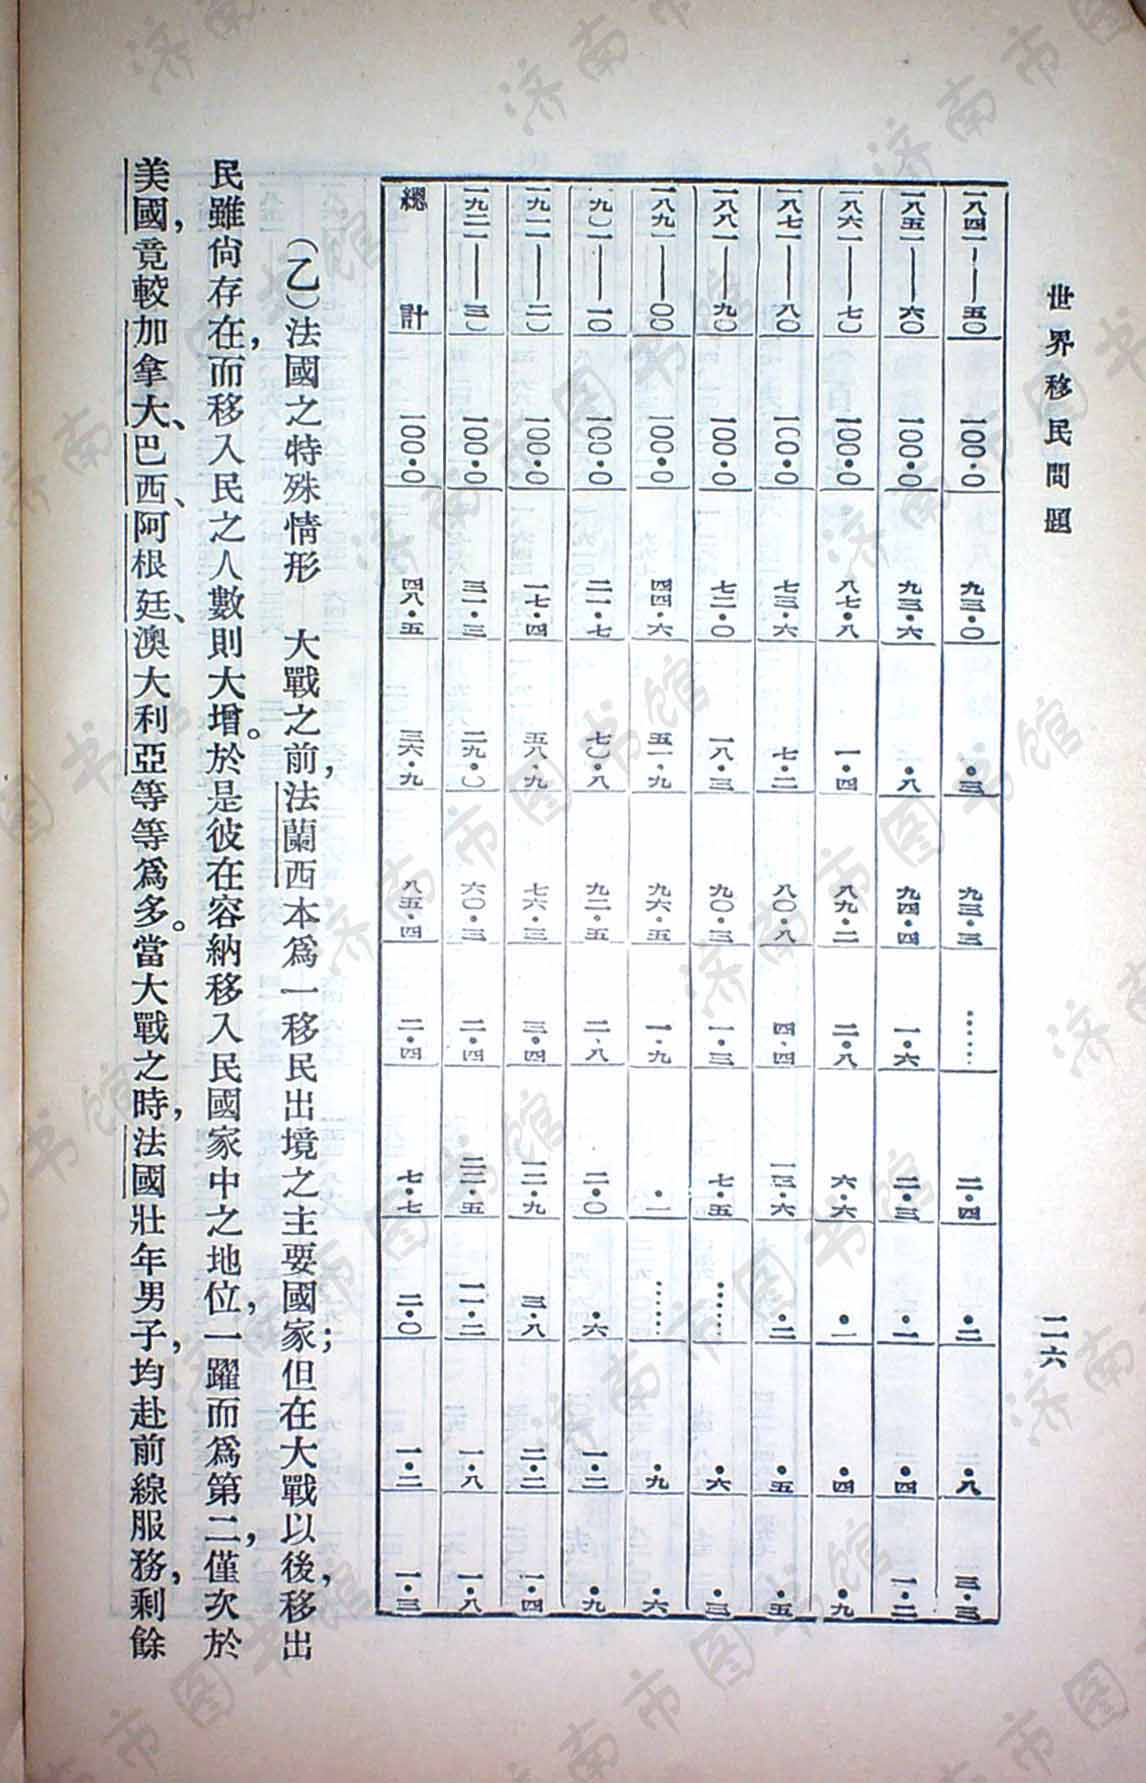 世界移民問題
二六
一八四一——五〇 一〇〇·〇 九三·〇 ·三 九三·三 …… 二·四 ·二 ·八 三·三
一八五一——六〇 一〇〇·〇 九三·六 ·八 九四·四 一·六 二·三 ·一 ·四 一·二
一八六一——七〇 一〇〇·〇 八七·八 一·四 八九·二 二·八 六·六 ·一 ·四 ·九
一八七一——八〇 一〇〇·〇 七三·六 七·二 八〇·八 四·四 一三·六 ·二 ·五 ·五
一八八一——九〇 一〇〇·〇 七二·〇 一八·三 九〇·三 一·三 七·五 …… ·六 ·三
一八九一——〇〇 一〇〇·〇 四四·六 五一·九 九六·五 一·九 ·一 …… ·九 ·六
一九〇一——一〇 一〇〇·〇 二一·七 七〇·八 九二·五 二·八 二·〇 ·六 一·二 ·九
一九一一——二〇 一〇〇·〇 一七·四 五八·九 七六·三 三·四 一二·九 三·八 二·二 一·四
一九二一——三〇 一〇〇·〇 三一·三 二九·〇 六〇·三 二·四 二二·五 一一·二 一·八 一·八
總計 一〇〇·〇 四八·五 三六·九 八五·四 二·四 七·七 二·〇 一·二 一·三
（乙）法國之特殊情形　大戰之前，法蘭西本爲一移民出境之主要國家；但在大戰以後，移出
民雖尙存在，而移入民之人數則大增。於是彼在容納移入民國家中之地位，一躍而爲第二，僅次於
美國，竟較加拿大、巴西、阿根廷、澳大利亞等等爲多。當大戰之時，法國壯年男子，均赴前線服務，剩餘
济南市图书馆